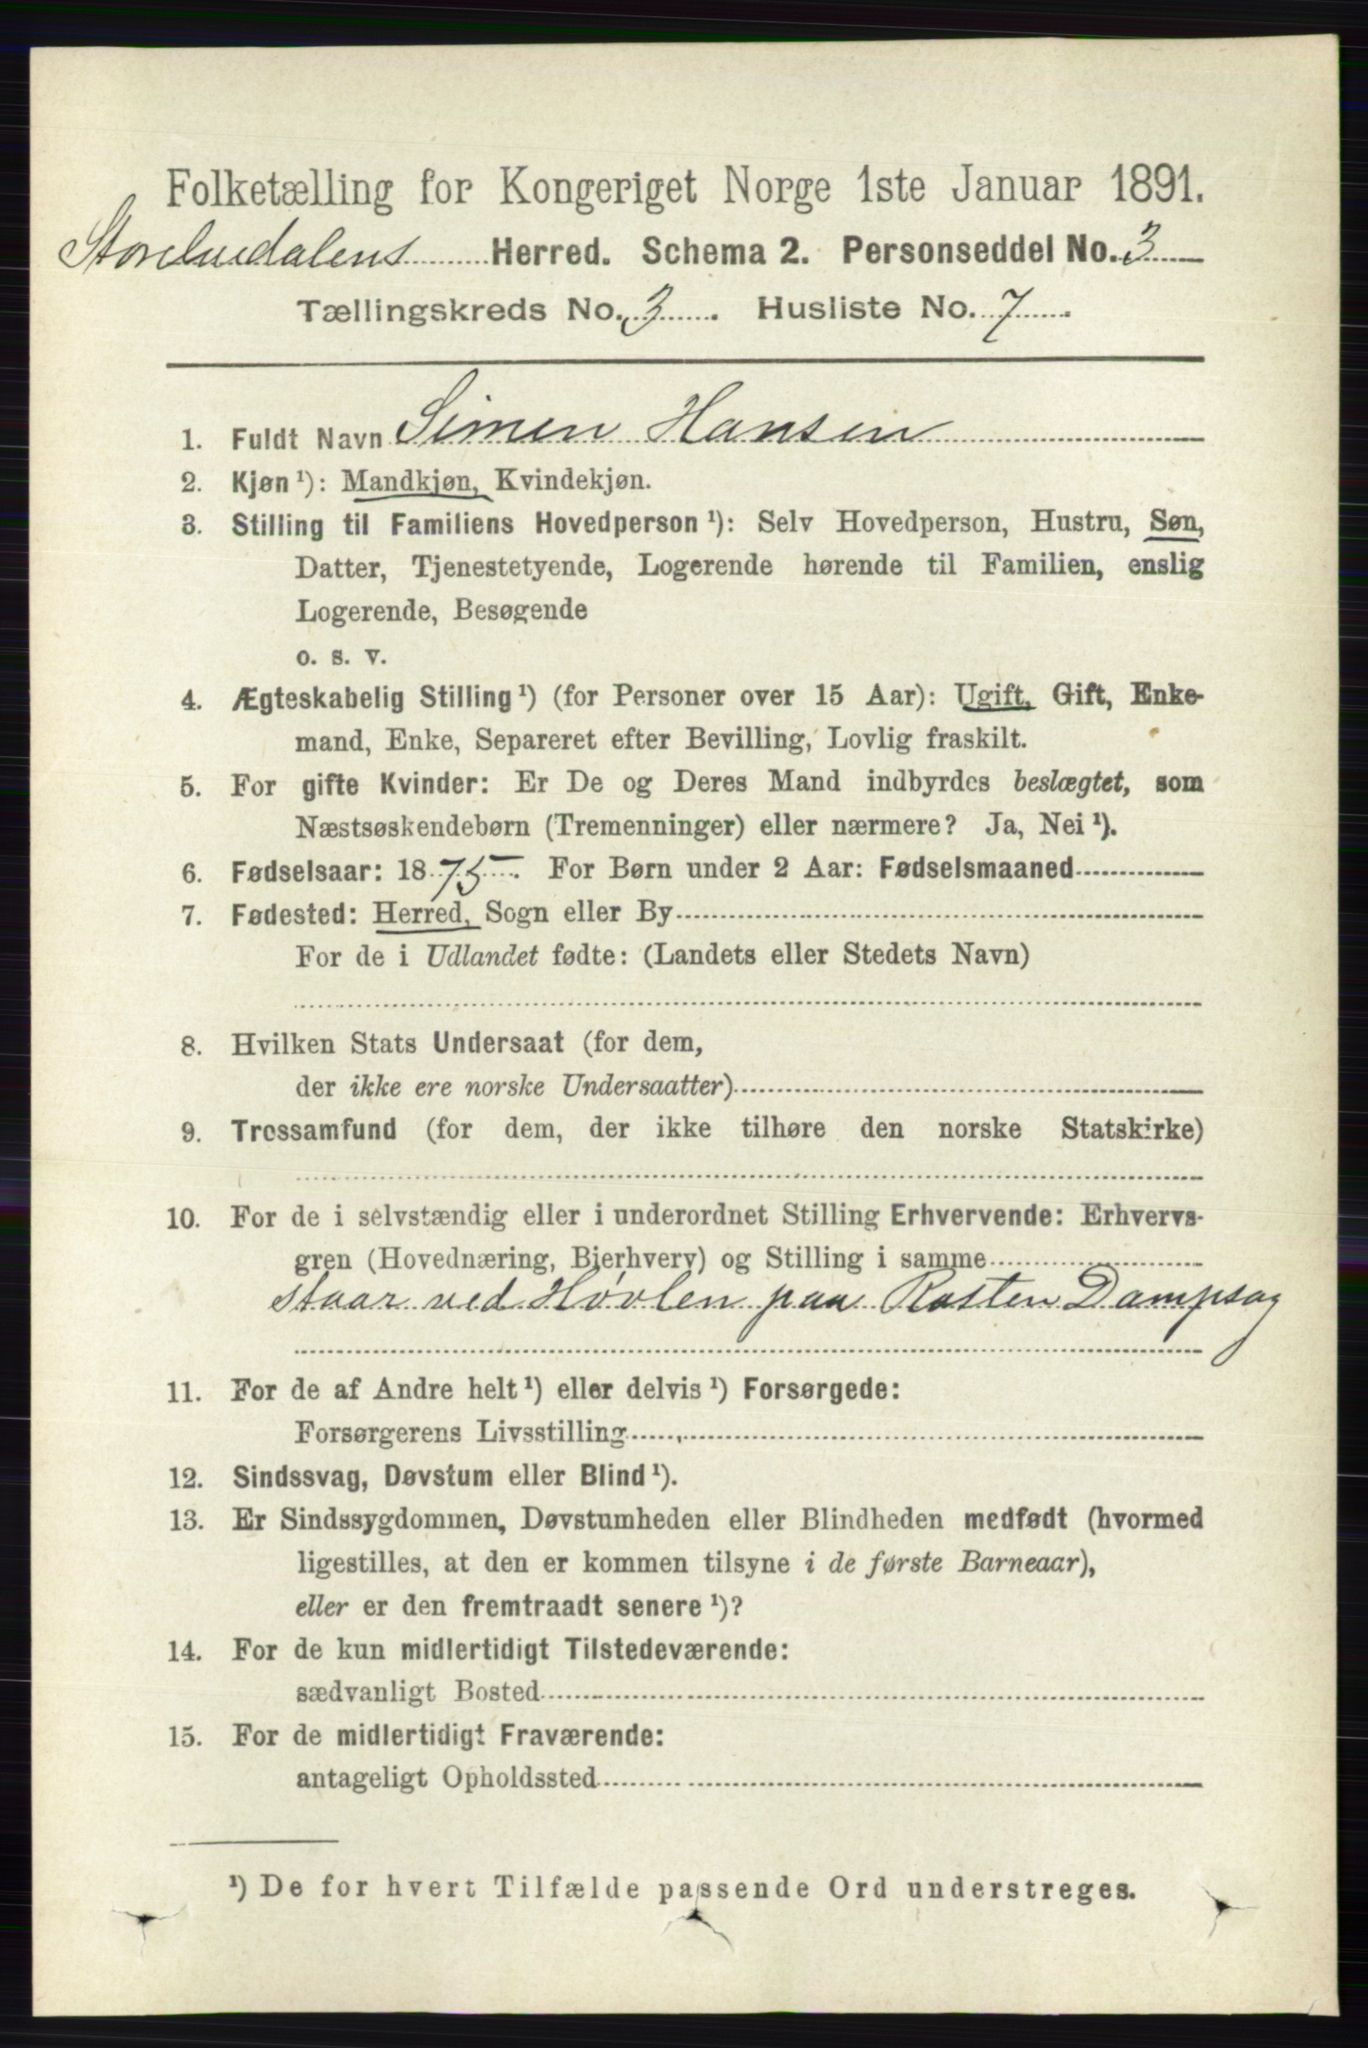 Folketælling for Kongeriget Norge 1ste Januar 1891.
Storelvedalens Herred. Schema 2. Personseddel No. 3
Tællingskreds No. 3. Husliste No. 7.
1. Fuldt Navn Simen Hansen
2. Kjøn ¹): Mandkjøn, Kvindekjøn.
3. Stilling til Familiens Hovedperson ¹): Selv Hovedperson, Hustru, Søn,
Datter, Tjenestetyende, Logerende hørende til Familien, enslig
Logerende, Besøgende
o. s. v.
4. Ægteskabelig Stilling ¹) (for Personer over 15 Aar): Ugift, Gift, Enke-
mand, Enke, Separeret efter Bevilling, Lovlig fraskilt.
5. For gifte Kvinder: Er De og Deres Mand indbyrdes beslægtet, som
Næstsøskendebørn (Tremenninger) eller nærmere? Ja, Nei ¹).
6. Fødselsaar: 1875. For Børn under 2 Aar: Fødselsmaaned
7. Fødested: Herred, Sogn eller By
For de i Udlandet fødte: (Landets eller Stedets Navn)
8. Hvilken Stats Undersaat (for dem,
der ikke ere norske Undersaatter)
9. Trossamfund (for dem, der ikke tilhøre den norske Statskirke)
10. For de i selvstændig eller i underordnet Stilling Erhvervende: Erhvervs-
gren (Hovednæring, Bierhverv) og Stilling i samme
staar ved Høvlen paa Rasten Dampsag
11. For de af Andre helt ¹) eller delvis ¹) Forsørgede:
Forsørgerens Livsstilling
12. Sindssvag, Døvstum eller Blind ¹).
13. Er Sindssygdommen, Døvstumheden eller Blindheden medfødt (hvormed
ligestilles, at den er kommen tilsyne i de første Barneaar),
eller er den fremtraadt senere ¹)?
14. For de kun midlertidigt Tilstedeværende:
sædvanligt Bosted
15. For de midlertidigt Fraværende:
antageligt Opholdssted
¹) De for hvert Tilfælde passende Ord understreges.